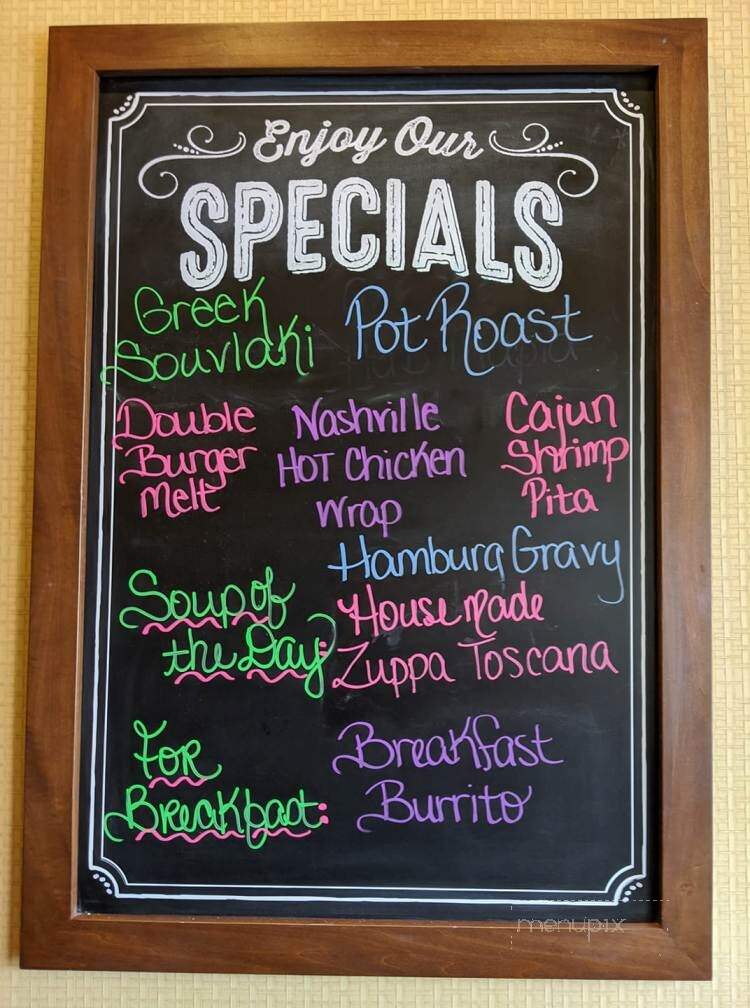 Enjoy Our
SPECIALS
Greek
Souvlaki
Pot Roast
Double
Burger
Melt
Nashville
HOT Chicken
Wrap
Cajun
Shrimp
Pita
Hamburg Gravy
Soup of
the Day:
House Made
Zuppa Toscana
For
Breakfast:
Breakfast
Burrito
menupix